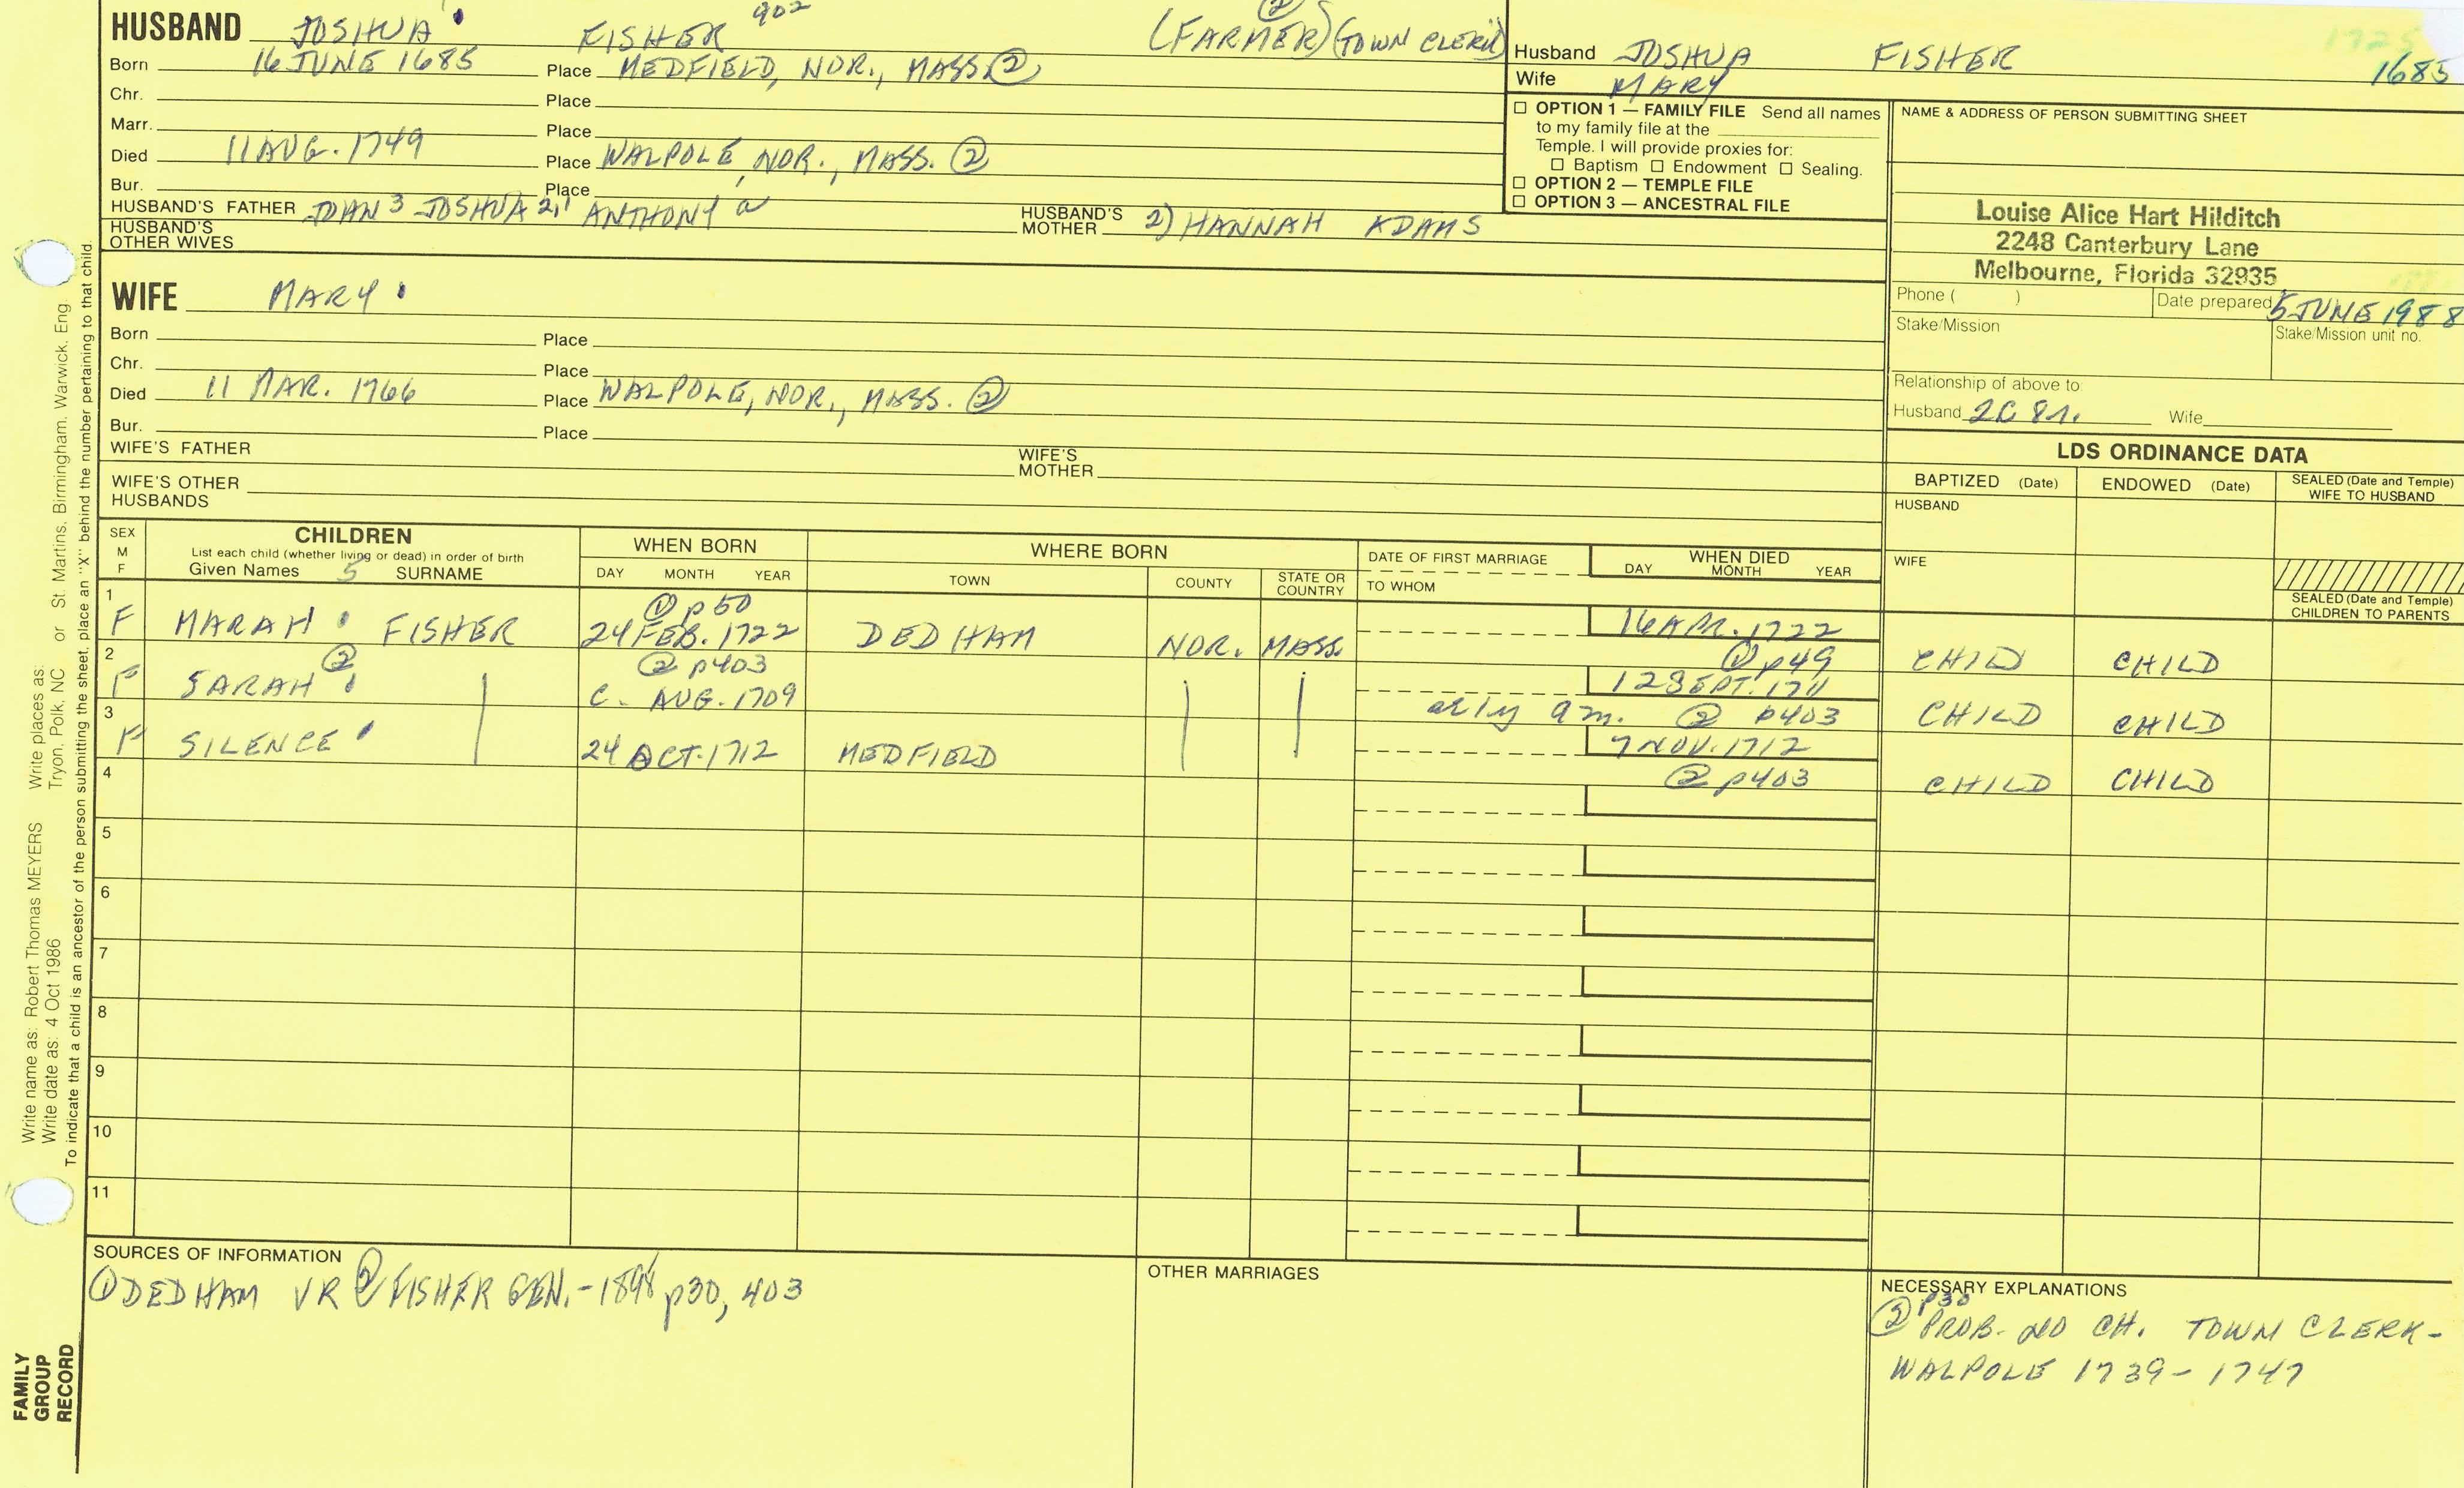 HUSBAND JOSHUA FISHER 902 (FARMER) (TOWN CLERK) ②
Born 16 JUNE 1685 Place MEDFIELD, NOR., MASS. ②
Chr. Place
Marr. Place
Died 11 AUG. 1749 Place WALPOLE, NOR., MASS. ②
Bur. Place
HUSBAND'S FATHER JOHN 3 JOSHUA 2,1 ANTHONY a HUSBAND'S MOTHER 2) HANNAH ADAMS
HUSBAND'S OTHER WIVES
WIFE MARY
Born Place
Chr. Place
Died 11 MAR. 1766 Place WALPOLE, NOR., MASS. ②
Bur. Place
WIFE'S FATHER WIFE'S MOTHER
WIFE'S OTHER HUSBANDS
1725
Husband JOSHUA FISHER 1685
Wife MARY
☐ OPTION 1 — FAMILY FILE Send all names
to my family file at the
Temple. I will provide proxies for:
☐ Baptism ☐ Endowment ☐ Sealing.
☐ OPTION 2 — TEMPLE FILE
☐ OPTION 3 — ANCESTRAL FILE
NAME & ADDRESS OF PERSON SUBMITTING SHEET
Louise Alice Hart Hilditch
2248 Canterbury Lane
Melbourne, Florida 32935
Phone ( ) Date prepared 5 JUNE 1988
Stake/Mission Stake/Mission unit no.
Relationship of above to:
Husband 2C 8R. Wife
LDS ORDINANCE DATA
BAPTIZED (Date) ENDOWED (Date) SEALED (Date and Temple) WIFE TO HUSBAND
HUSBAND
WIFE
SEALED (Date and Temple) CHILDREN TO PARENTS
SEX M F
CHILDREN
List each child (whether living or dead) in order of birth
Given Names 5 SURNAME
WHEN BORN
DAY MONTH YEAR
WHERE BORN
TOWN COUNTY STATE OR COUNTRY
DATE OF FIRST MARRIAGE
TO WHOM
WHEN DIED
DAY MONTH YEAR
① p50
1 F MARAH FISHER 24 FEB. 1722 DEDHAM NOR. MASS. 16 APR. 1722 ① p49 CHILD CHILD
② ② p403
2 F SARAH C. AUG. 1709 12 SEPT. 1711 ② p403 CHILD CHILD
3 F SILENCE 24 OCT. 1712 MEDFIELD 7 NOV. 1712 ② p403 CHILD CHILD
4
5
6
7
8
9
10
11
SOURCES OF INFORMATION
① DEDHAM VR ② FISHER GEN. - 1898 p30, 403
OTHER MARRIAGES
NECESSARY EXPLANATIONS
② p30 PROB. NO CH. TOWN CLERK -
WALPOLE 1739 - 1747
Write name as: Robert Thomas MEYERS Write places as:
Write date as: 4 Oct 1986 Tryon, Polk, NC or St. Martins, Birmingham, Warwick, Eng
To indicate that a child is an ancestor of the person submitting the sheet, place an "X" behind the number pertaining to that child.
FAMILY
GROUP
RECORD